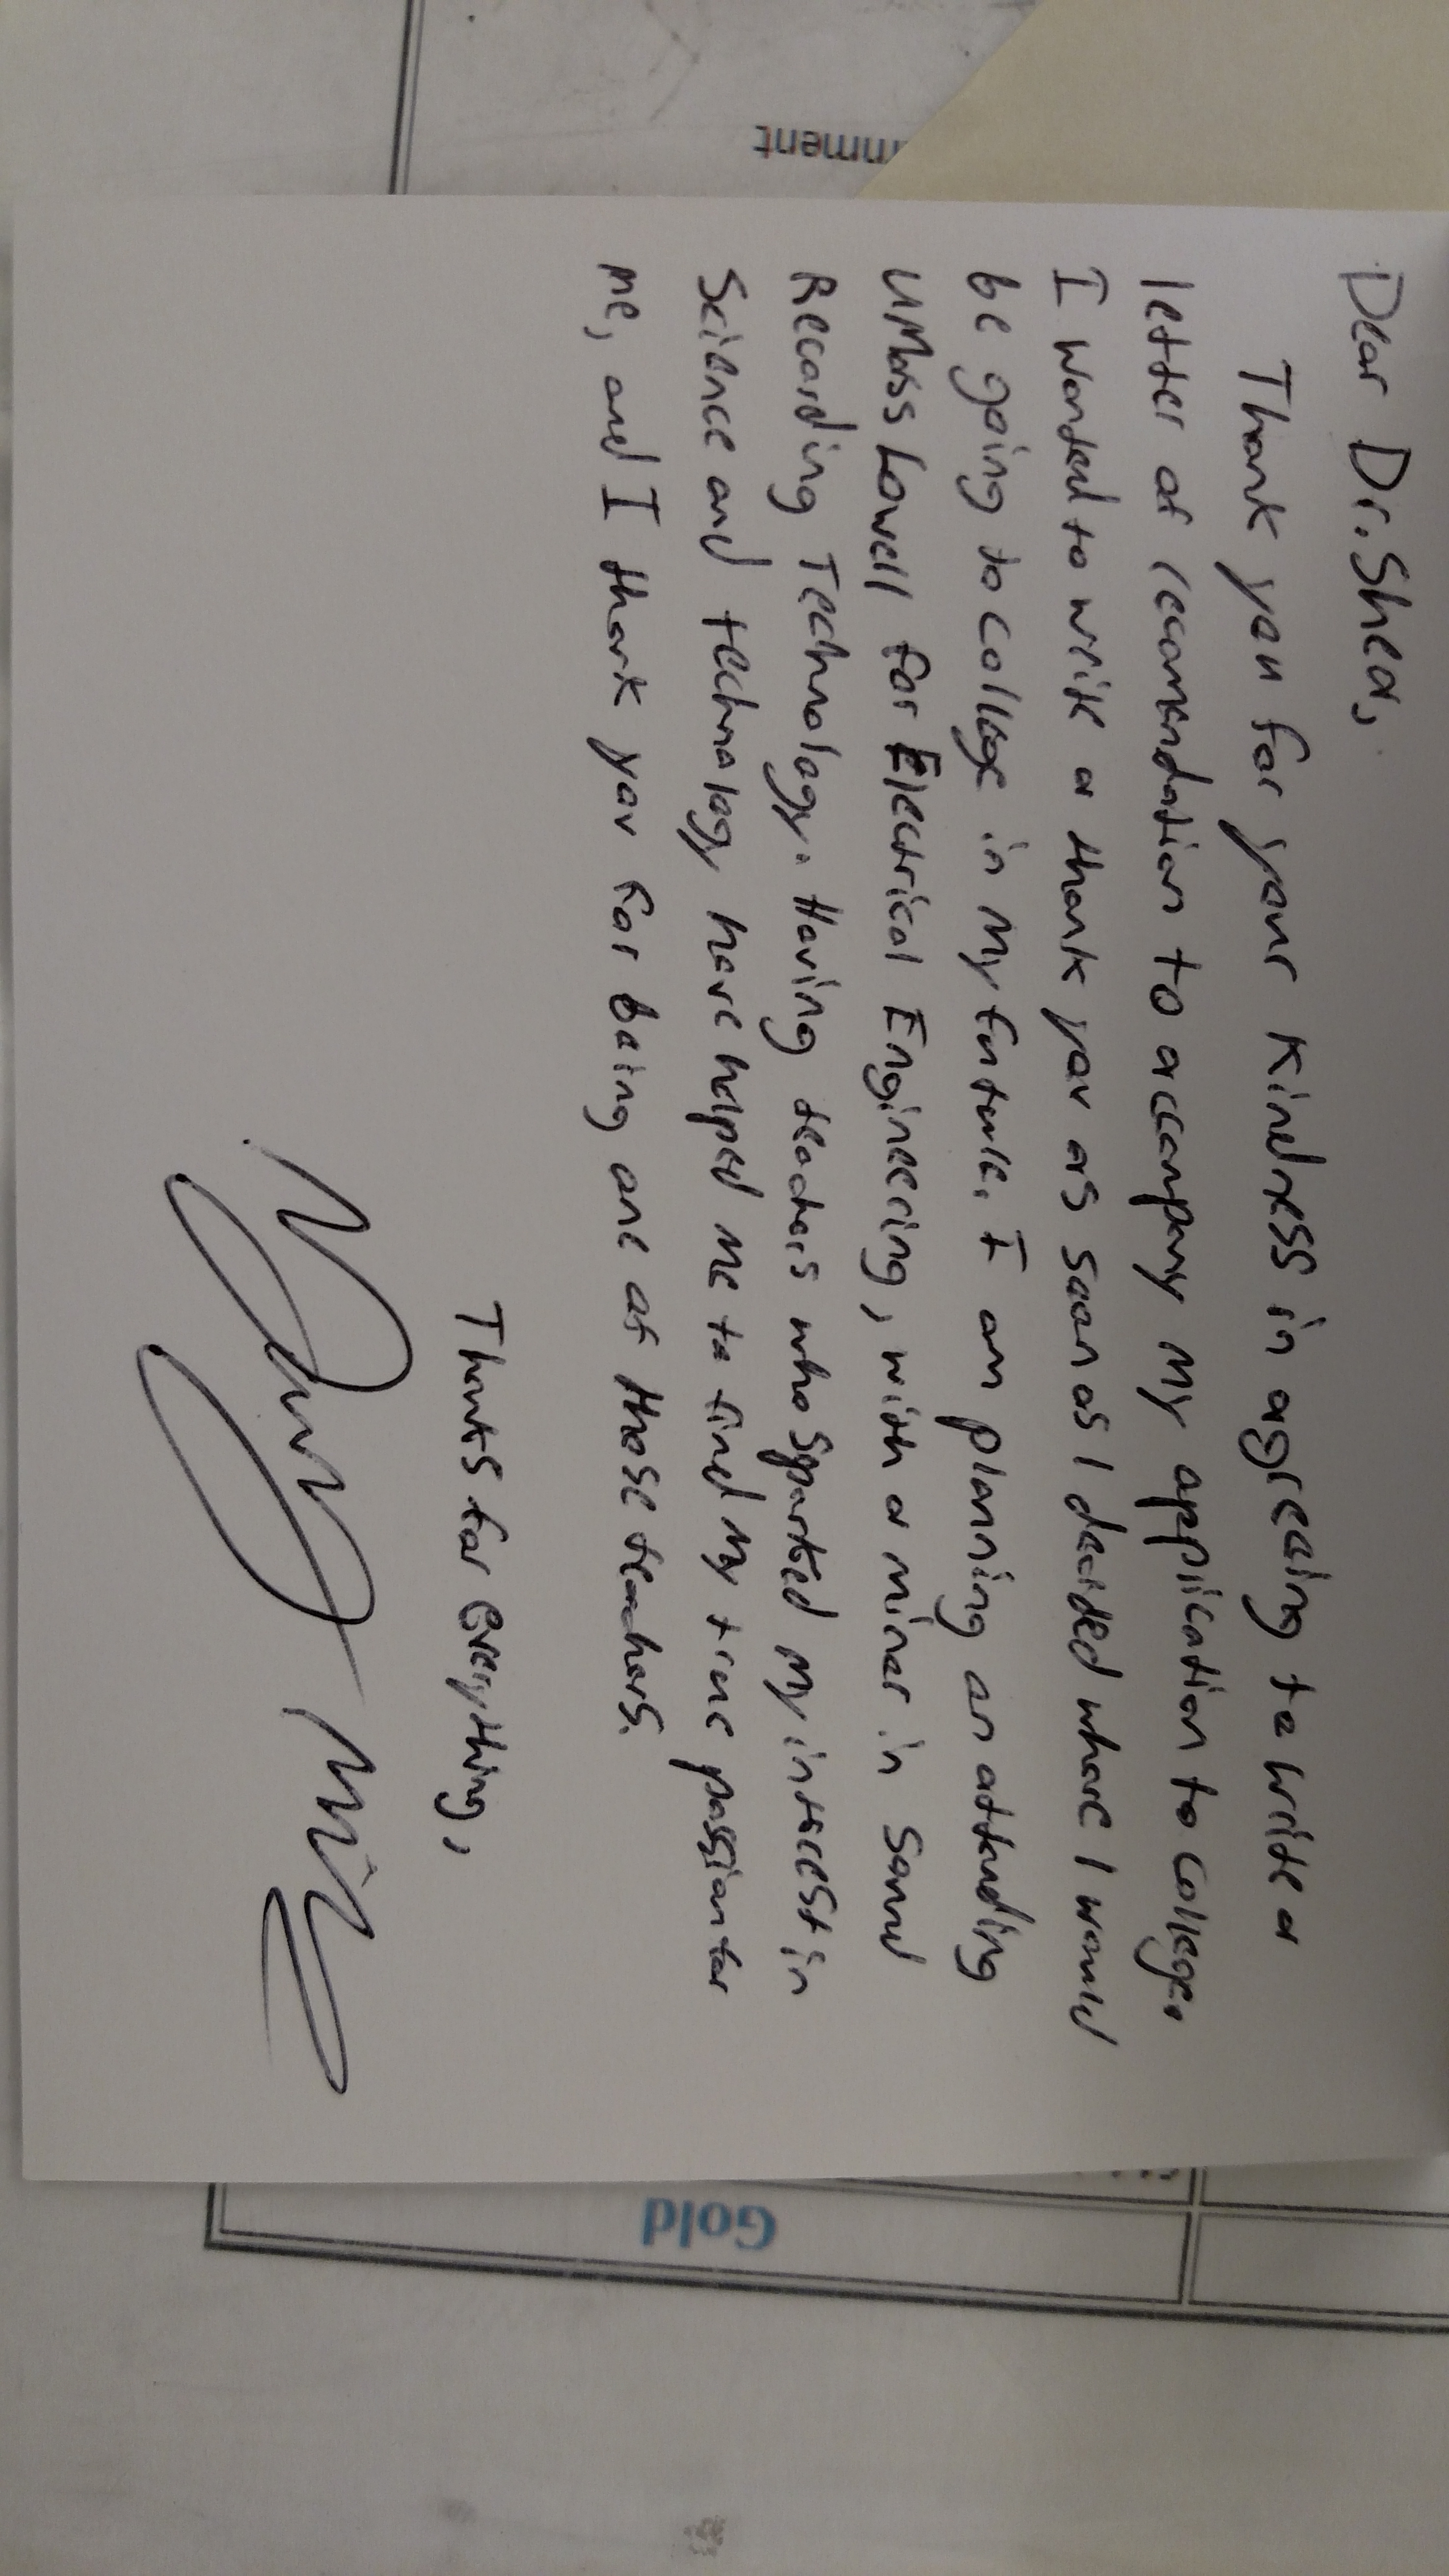 Dear Dr. Shea,
Thank you for your kindness in agreeing to write a
letter of recomendation to accompany my application to college.
I wanted to write a thank you as soon as I decided where I would
be going to college in my future. I am planning on attending
UMass Lowell for Electrical Engineering, with a minor in Sound
Recording Technology. Having teachers who sparked my interest in
Science and technology have helped me to find my true passion for
me, and I thank you for being one of those teachers.
Thanks for everything,
nment
Gold